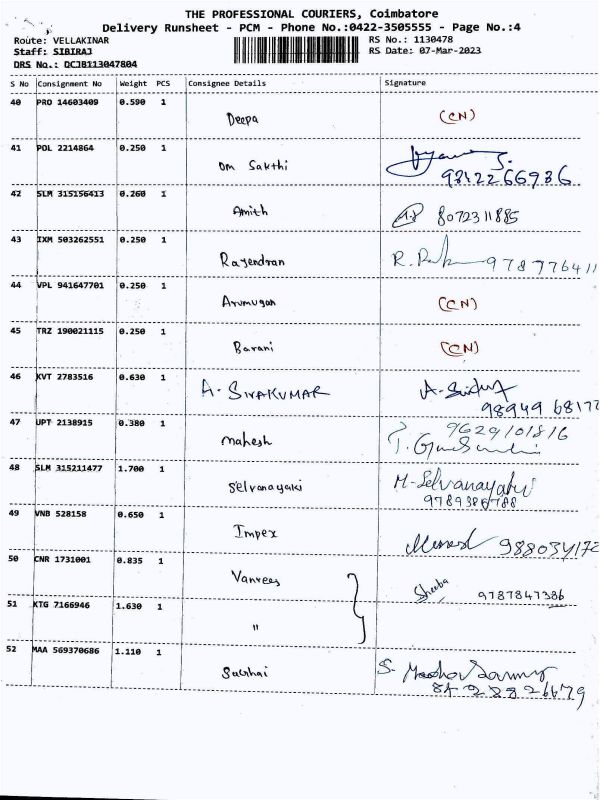 THE PROFESSIONAL COURIERS, Coimbatore
Delivery Runsheet - PCM - Phone No.:0422-3505555 - Page No.:4
Route: VELLAKINAR RS No.: 1130478
Staff: SIBIRAJ RS Date: 07-Mar-2023
DRS No.: DCJB113047804
S No Consignment No Weight PCS Consignee Details Signature
40 PRO 14603409 0.590 1 Deepa (CN)
41 POL 2214864 0.250 1 Om Sakthi
9842266986
42 SLM 315156413 0.260 1 Amith 8072311885
43 IXM 503262551 0.250 1 Rajendran 9787776411
44 VPL 941647701 0.250 1 Arumugan (CN)
45 TRZ 190021115 0.250 1 Barani (CN)
46 KVT 2783516 0.630 1 A. SIVAKUMAR
98949 68177
47 UPT 2138915 0.380 1 mahesh 9629101816
48 SLM 315211477 1.700 1 Selvanayaki M. Selvanayaki
9789386788
49 VNB 528158 0.650 1 Impex
50 CNR 1731001 0.835 1 Vanrees Sheeba 9787847386
51 KTG 7166946 1.630 1 "
52 MAA 569370686 1.110 1